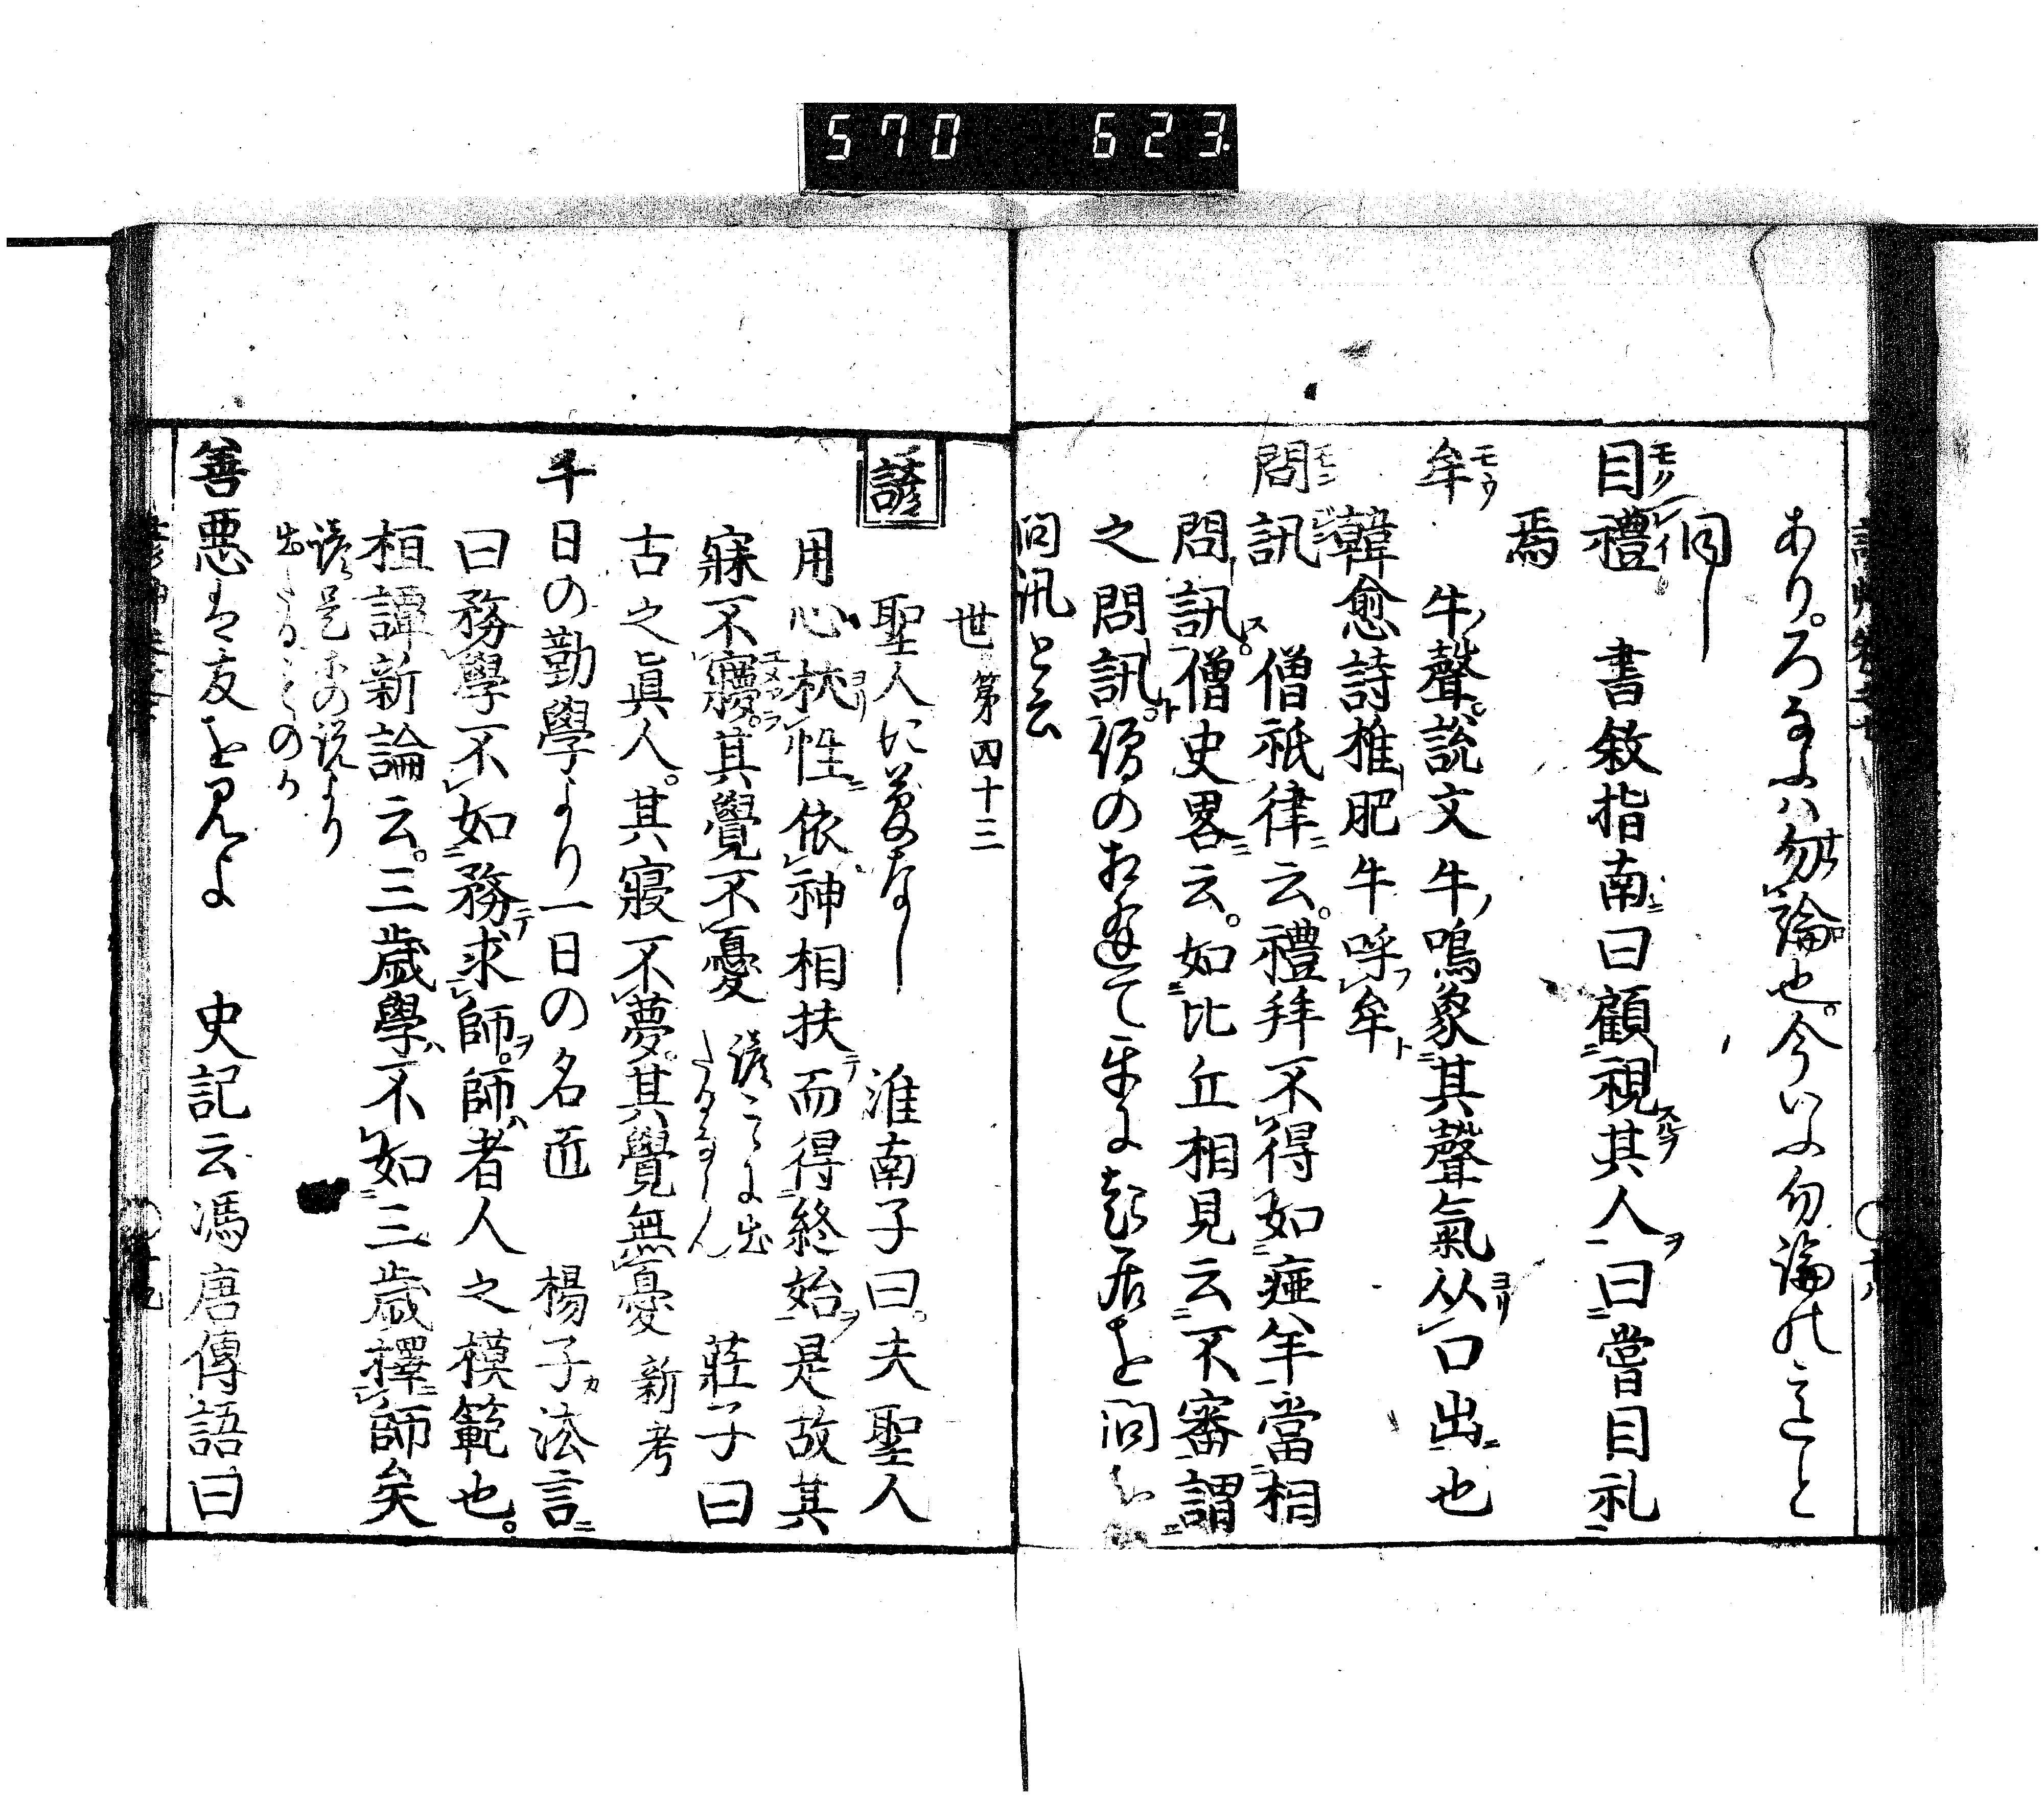 570 623
あり。ろなふハ勿論也。今いふ勿論のこと
同し
目禮 書敘指南曰顧視其人曰嘗目礼
焉
牟 牛聲。說文牛鳴象其聲氣从口出也
韓愈詩椎肥牛呼牟
問訊 僧祇律云。禮拜不得如瘂羊當相
問訊。僧史畧云。如比丘相見云不審謂
之問訊。僧のお逢て互に起居を問を
問訊と云
世 第四十三
諺 聖人に夢なし 淮南子曰。夫聖人
用心杖性依神相扶而得終始是故其
寐不寢夢。其覺不憂 諺こゝに出たるなりん 莊子曰
古之眞人。其寢不夢。其覺無憂 新考
千日の勤學より一日の名匠 楊子法言
曰務學不如務求師。師者人之模範也。
桓譚新論云。三歲學不如三歲擇師矣
諺是ホの說より
出たることのか
善悪は友を見よ 史記云馮唐傳語曰